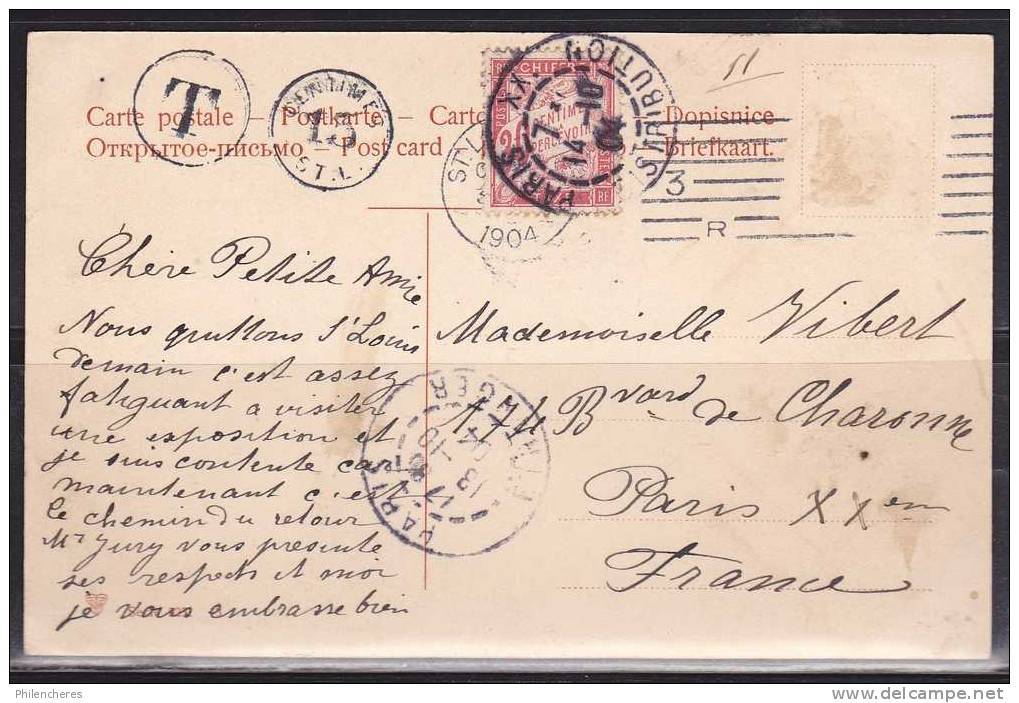 51
T
CENTIMES
15
ST.L.
Carte postale — Postkarte — Dopisnice
Открытое-письмо — Post card Briefkaart.
CHIFFRE
CENTIMES
PERCEVOIR
RF
PARIS XX DISTRIBUTION
7
14 -10
04
ST.L
1904
3
R
Chère Petite Amie
Nous quittons St Louis
demain c'est assez
fatiguant a visiter
une exposition et
je suis contente car
maintenant c'est
le chemin du retour
Mr Jury vous presente
ses respects et moi
je vous embrasse bien
Mademoiselle Vibert
Bvard de Charonne
Paris XXem
France
PARIS ETRANGER
17
13 -10
04
Philencheres
www.delcampe.net